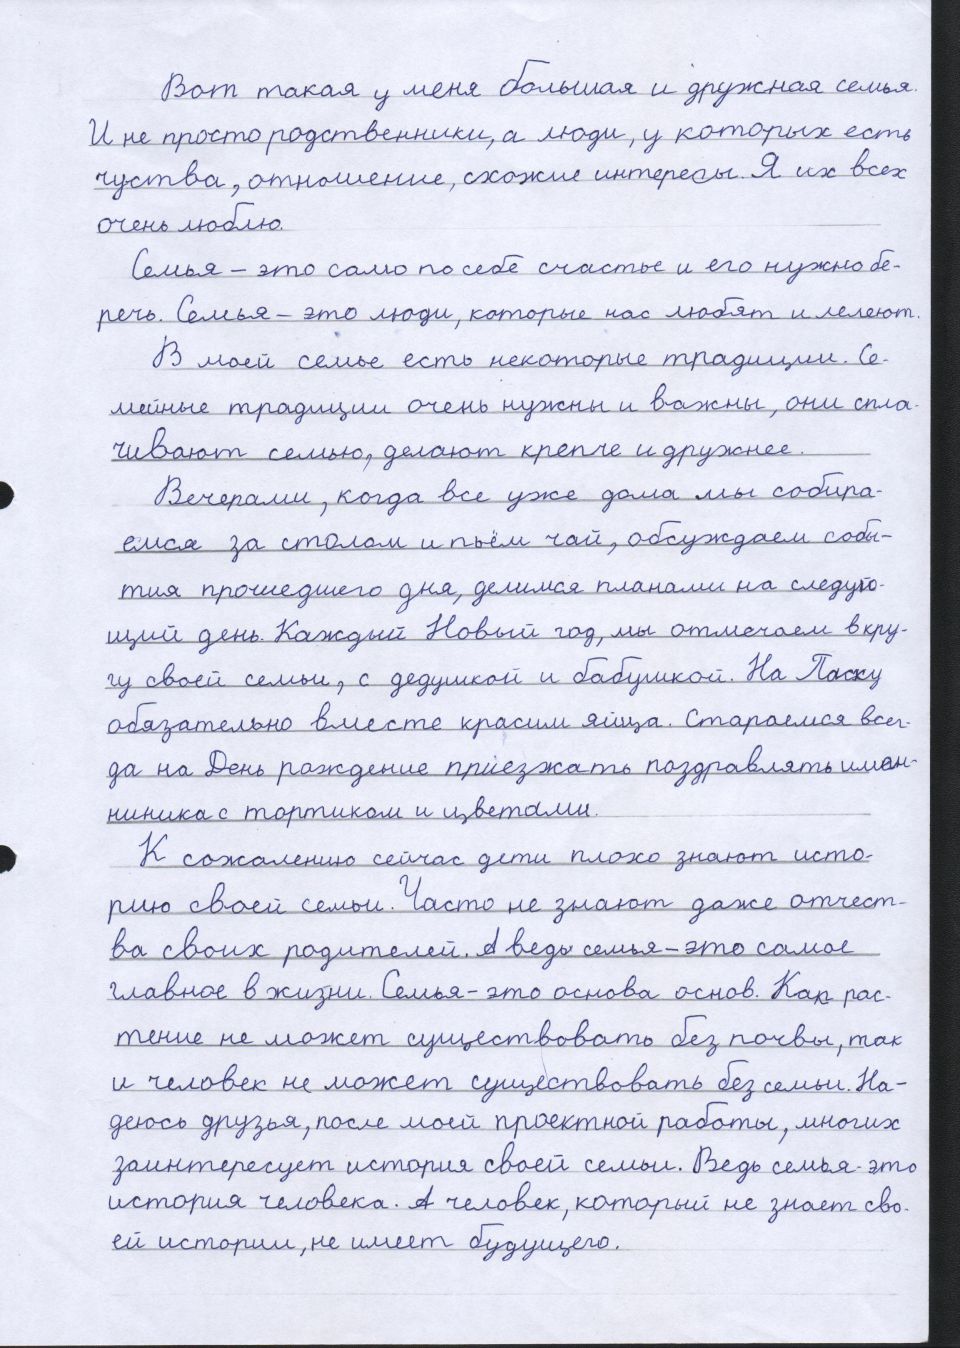 Вот такая у меня большая и дружная семья.
И не просто родственники, а люди, у которых есть
чуства, отношение, схожие интересы. Я их всех
очень люблю.
Семья – это само по себе счастье и его нужно бе-
речь. Семья – это люди, которые нас любят и лелеют.
В моей семье есть некоторые традиции. Се-
мейные традиции очень нужны и важны, они спла-
чивают семью, делают крепче и дружнее.
Вечерами, когда все уже дома мы собира-
емся за столом и пьём чай, обсуждаем собы-
тия прошедшего дня, делимся планами на следую-
щий день. Каждый Новый год, мы отмечаем в кру-
гу своей семьи, с дедушкой и бабушкой. На Пасху
обязательно вместе красим яйца. Стараемся всег-
да на День рождение приезжать поздравлять имен-
ниника с тортиком и цветами.
К сожалению сейчас дети плохо знают исто-
рию своей семьи. Часто не знают даже отчест-
ва своих родителей. А ведь семья – это самое
главное в жизни. Семья – это основа основ. Как рас-
тение не может существовать без почвы, так
и человек не может существовать без семьи. На-
деюсь друзья, после моей проектной работы, многих
заинтересует история своей семьи. Ведь семья - это
история человека. А человек, который не знает сво-
ей истории, не имеет будущего.